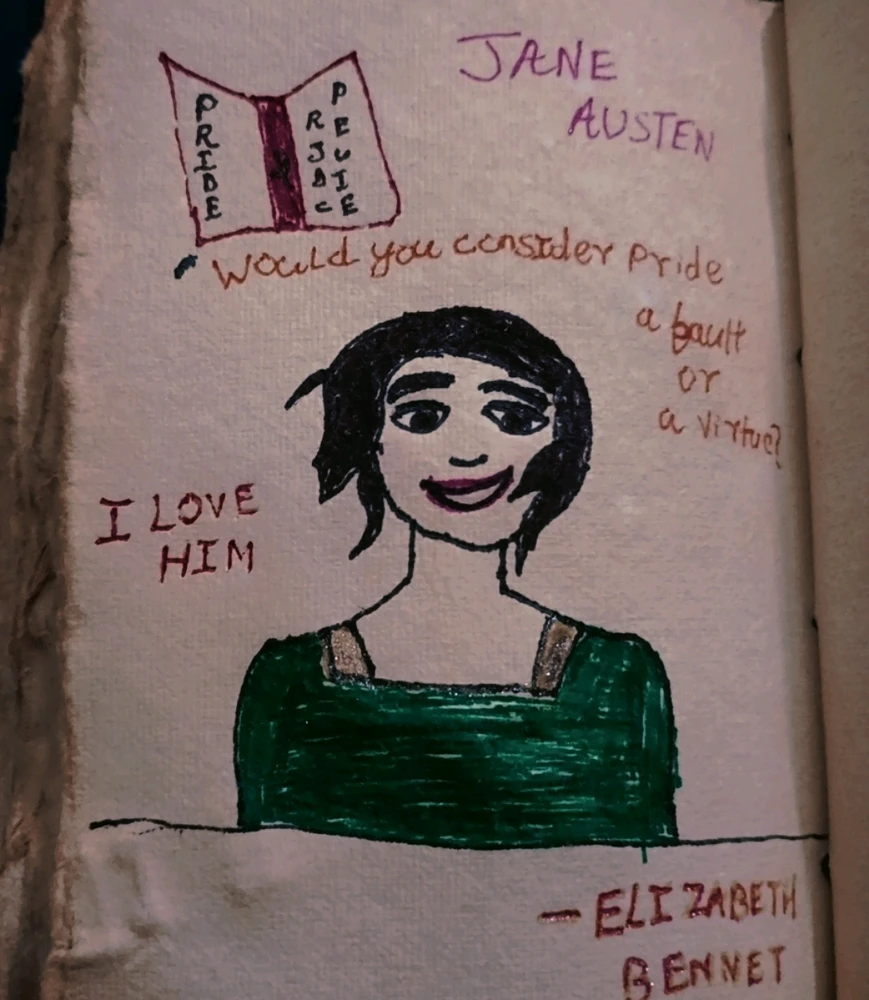 JANE
AUSTEN
PRIDE
PREJUDICE
Would you consider pride
a fault
or
a virtue?
I LOVE
HIM
— ELIZABETH
BENNET